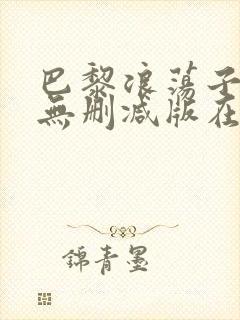 巴黎浪荡子
無刪减版在
錦青墨